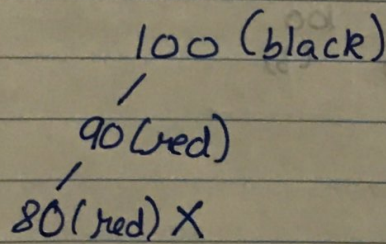 100 (black)
90 (red)
80 (red) X